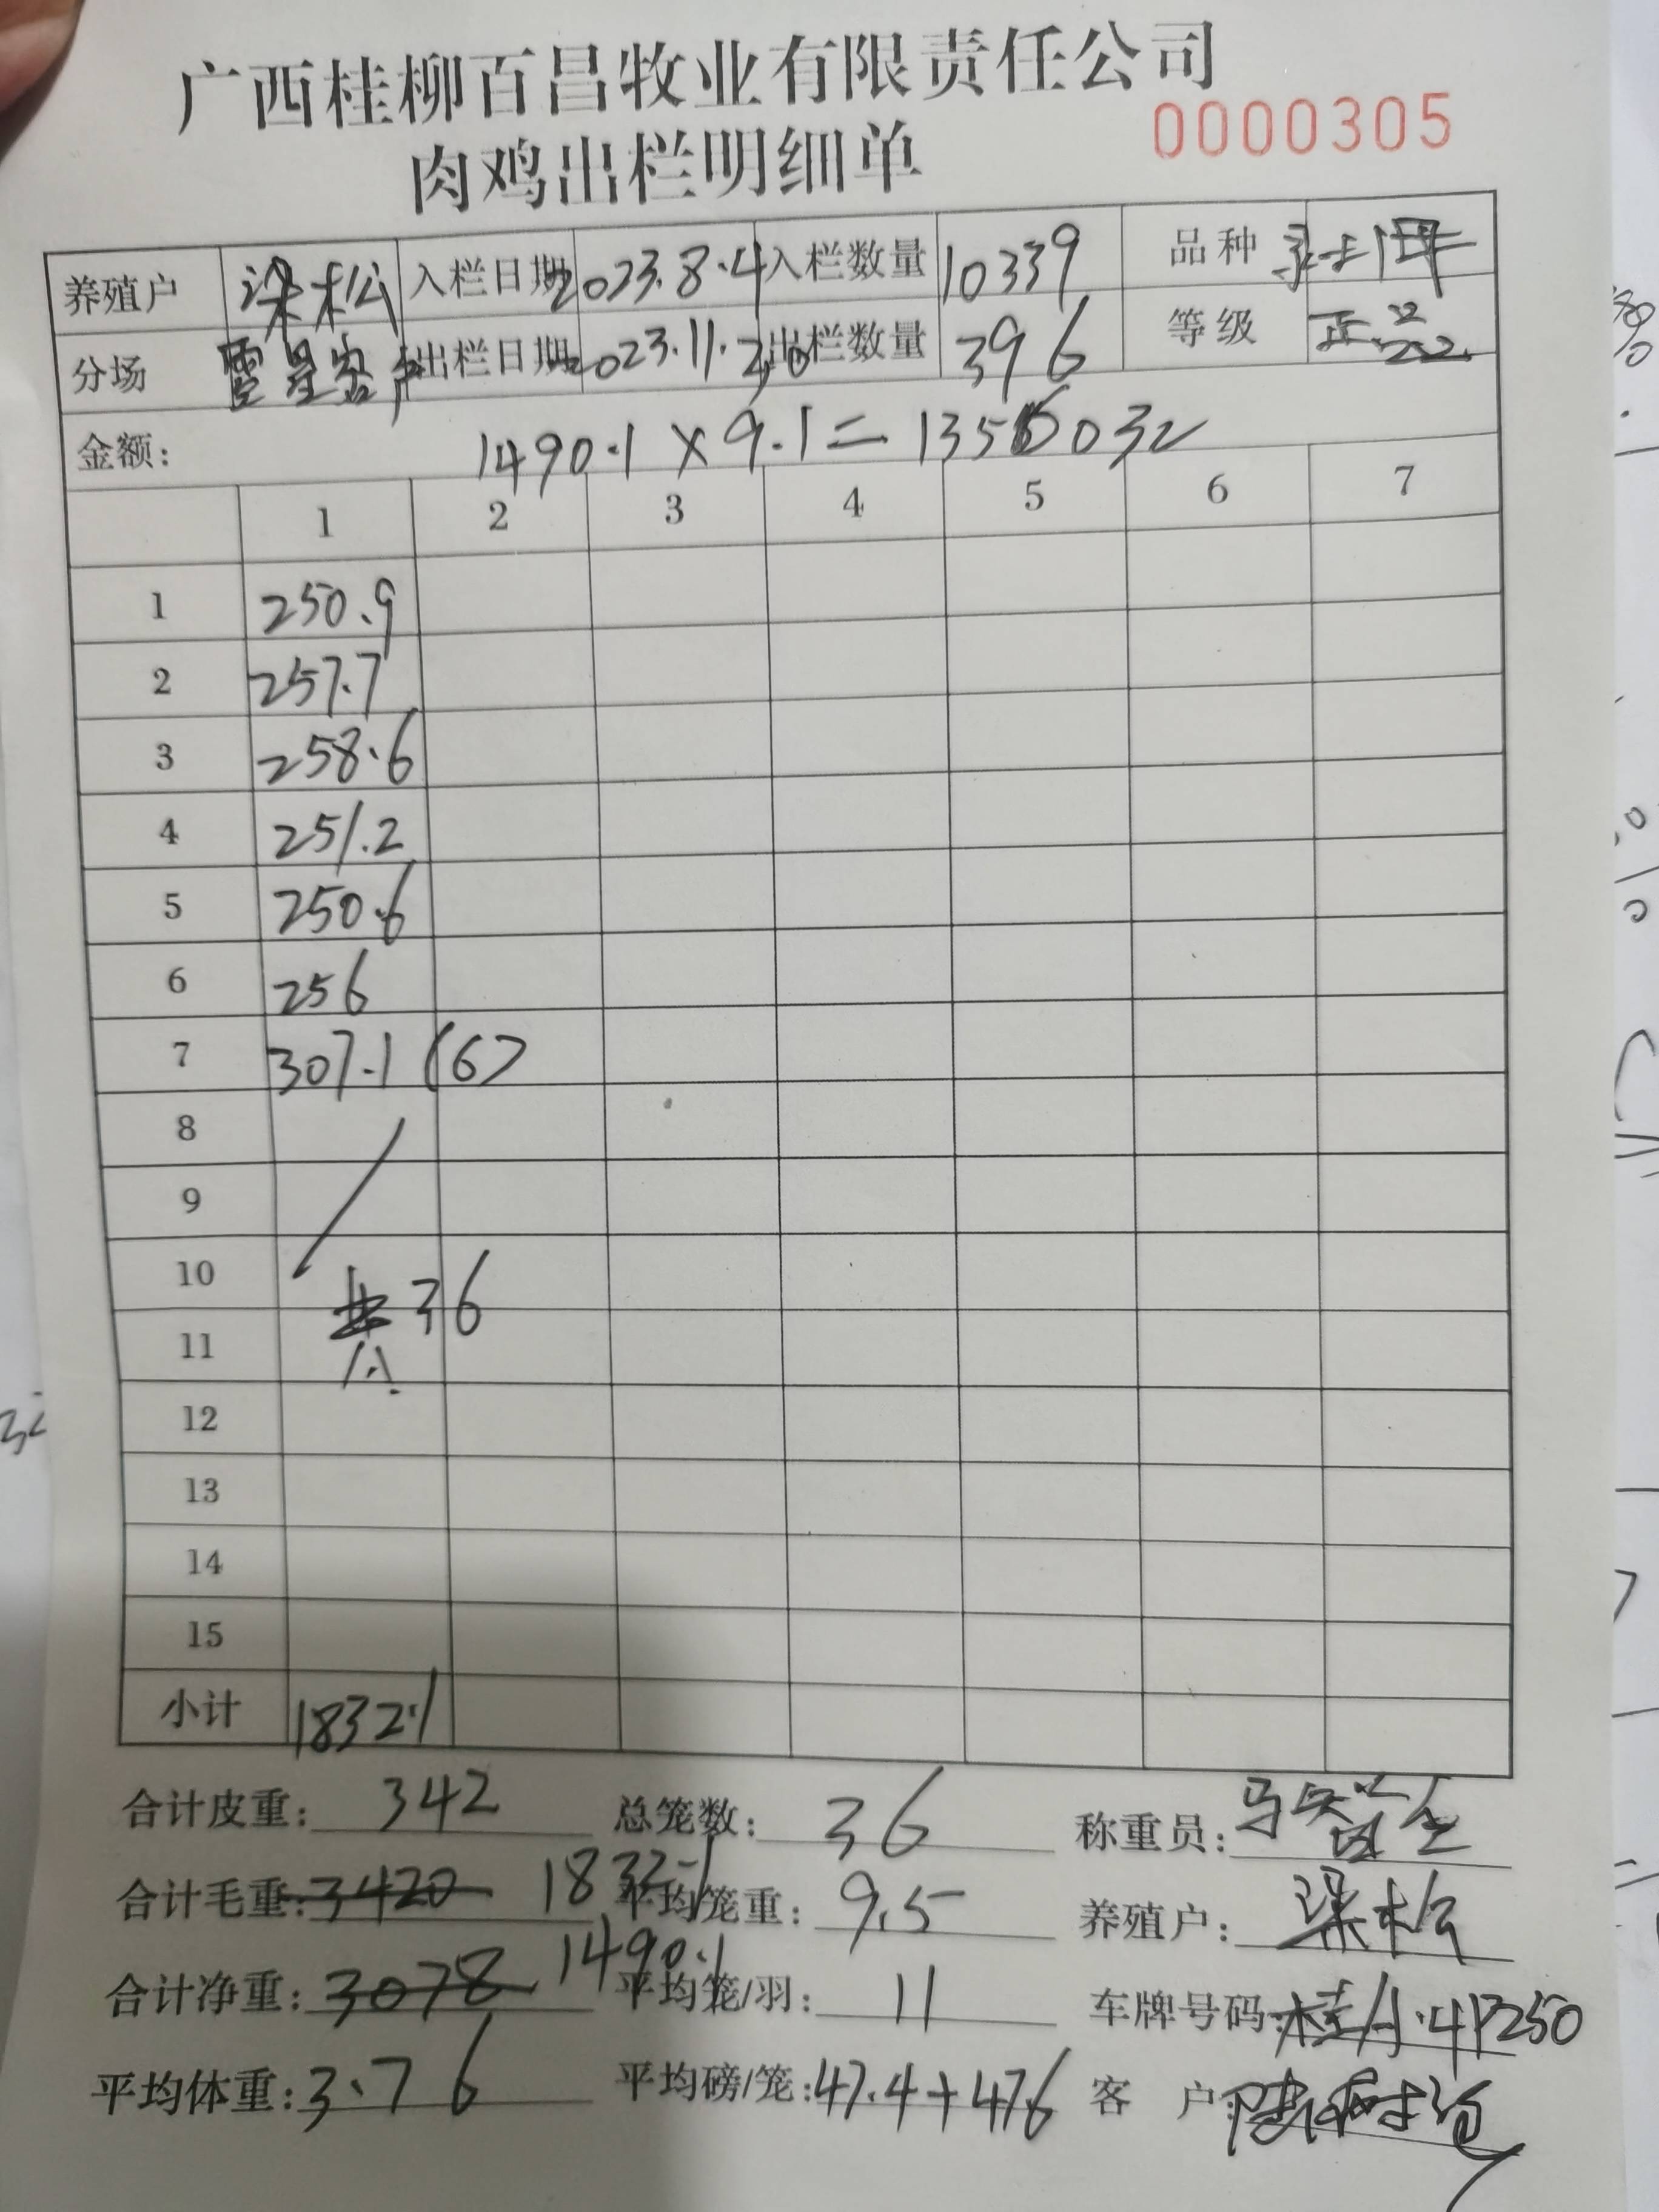 广西桂柳百昌牧业有限责任公司
肉鸡出栏明细单
0000305
养殖户 梁松 入栏日期 2023.8.4 入栏数量 10339 品种
分场 出栏日期 2023.11.20 出栏数量 396 等级 正品
金额: 1490.1×9.1=1356032
1 2 3 4 5 6 7
1 250.9
2 257.7
3 258.6
4 251.2
5 250.6
6 256
7 307.1 (6)
8
9
10
共36
11
12
13
14
15
小计 1832.1
合计皮重: 342 总笼数: 36 称重员:
合计毛重: 3420 1832.1 平均笼重: 9.5 养殖户: 梁松
合计净重: 3078 1490.1 平均笼/羽: 11 车牌号码:
平均体重: 3.76 平均磅/笼: 47.4+476 客 户: